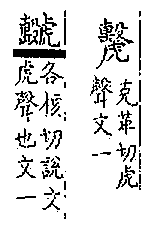 克革切虎
聲文一
各核切說文
虎聲也文一